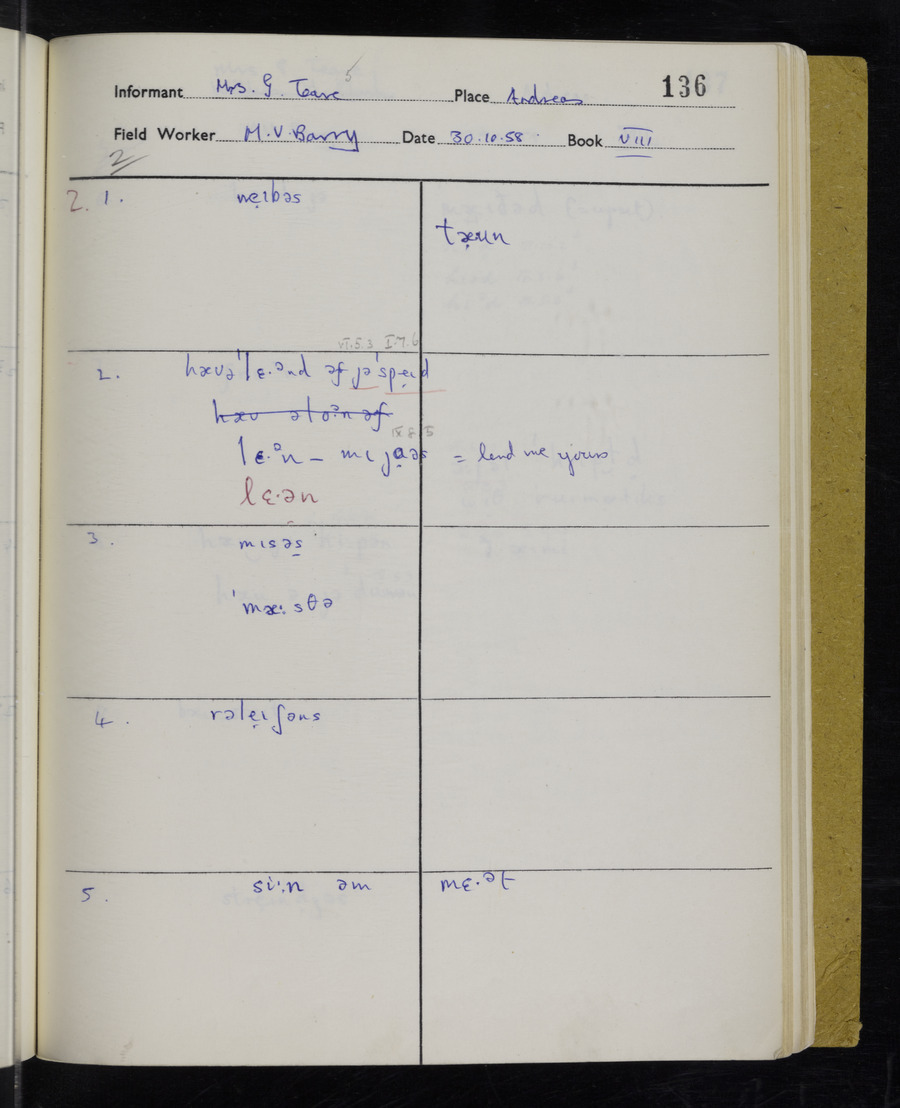 5
Informant Mrs. G. Teare Place Andreas 136
Field Worker M.V. Barry Date 30.10.58 Book VIII
2
2. 1. nẹɪbəs
tæ̣ʉn
VI.5.3 I.7.6
2. hævə'lɛ·ᵊnd əf jə'spẹɪd
IX.8.5
lɛ·ᵊn – mɪ jɑ̣əs = lend me yours
lɛ·ən
3. mɪsəs
'mæ:sθə
4. rəlẹɪʃəns
5. si:n əm mɛ·ət